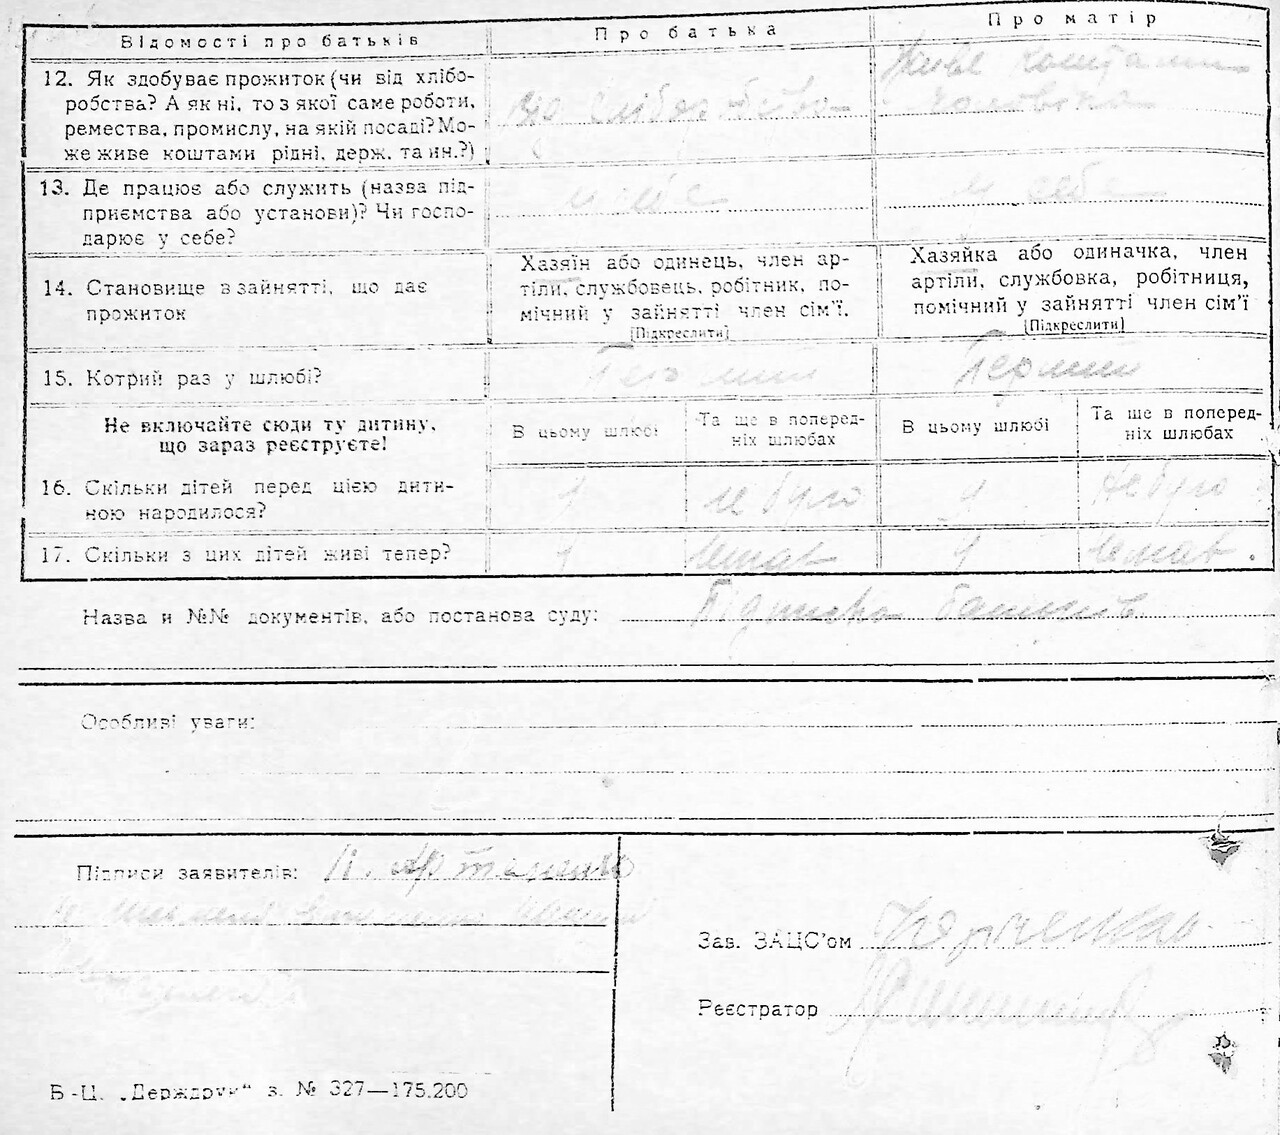 Відомості про батьків
Про батька
Про матір
12. Як здобуває прожиток (чи від хлібо-
робства? А як ні, то з якої саме роботи,
ремества, промислу, на якій посаді? Мо-
же живе коштами рідні, держ. та ин.?)
Живе коштами
чоловіка
13. Де працює або служить (назва під-
приємства або установи)? Чи госпо-
дарює у себе?
у себе
у себе
14. Становище в зайнятті, що дає
прожиток
Хазяїн або одинець, член ар-
тіли, службовець, робітник, по-
мічний у зайнятті член сім'ї.
[Підкреслити]
Хазяйка або одиначка, член
артіли, службовка, робітниця,
помічний у зайнятті член сім'ї
[Підкреслити]
15. Котрий раз у шлюбі?
Первий
Первий
Не включайте сюди ту дитину,
що зараз реєструєте!
В цьому шлюбі
Та ще в поперед-
ніх шлюбах
В цьому шлюбі
Та ще в поперед-
ніх шлюбах
16. Скільки дітей перед цією дити-
ною народилося?
1
не було
1
не було
17. Скільки з цих дітей живі тепер?
1
немає
1
немає
Назва и №№ документів, або постанова суду: Підписка батьків
Особливі уваги:
Підписи заявителів:
Зав. ЗАЦС'ом
Реєстратор
Б-Ц. „Держдрук" з. № 327—175.200